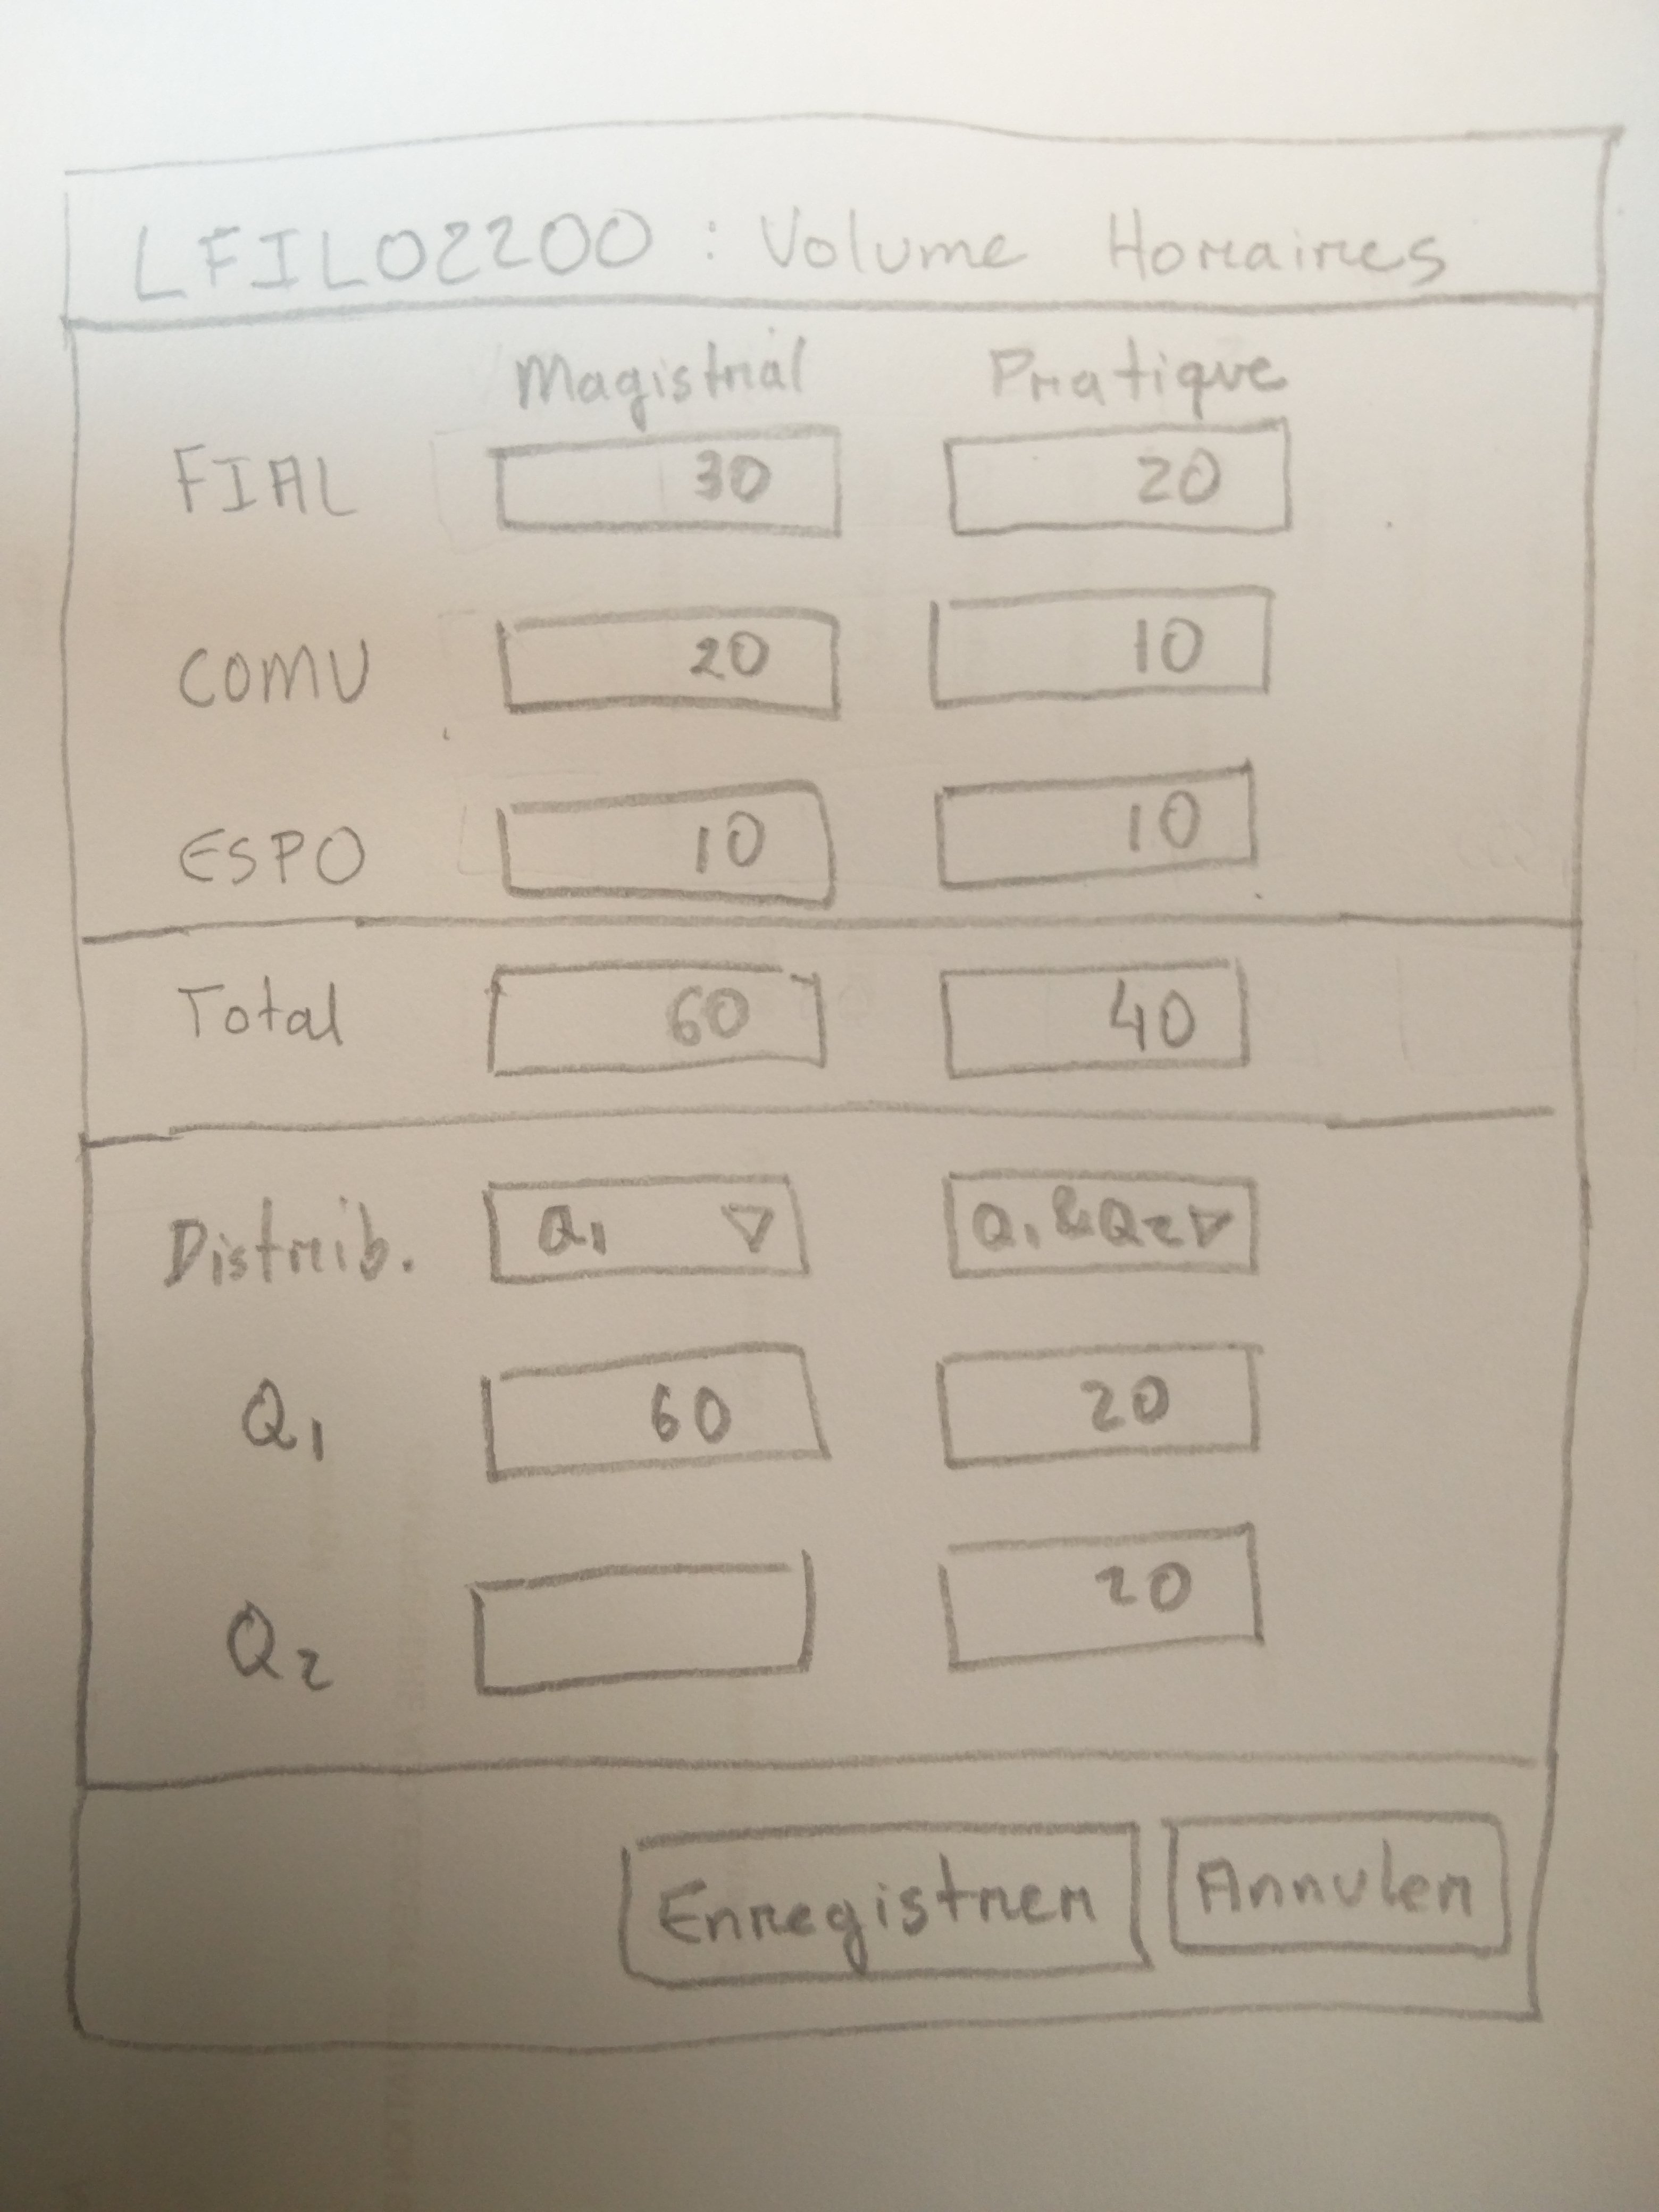 LFILO2200 : Volume Horaires
Magistral Pratique
FIAL 30 20
COMU 20 10
ESPO 10 10
Total 60 40
Distrib. Q1 Q1&Q2
Q1 60 20
Q2 20
Enregistrer Annuler